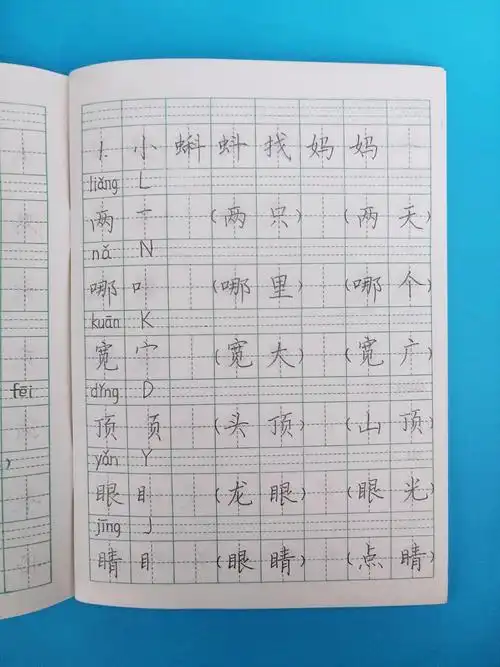 1. 小蝌蚪找妈妈
liǎng L
两 一 (两只) (两天)
nǎ N
哪 口 (哪里) (哪个)
kuān K
宽 宀 (宽大) (宽广)
dǐng D
顶 页 (头顶) (山顶)
yǎn Y
眼 目 (龙眼) (眼光)
jīng J
睛 目 (眼睛) (点睛)
fēi
)